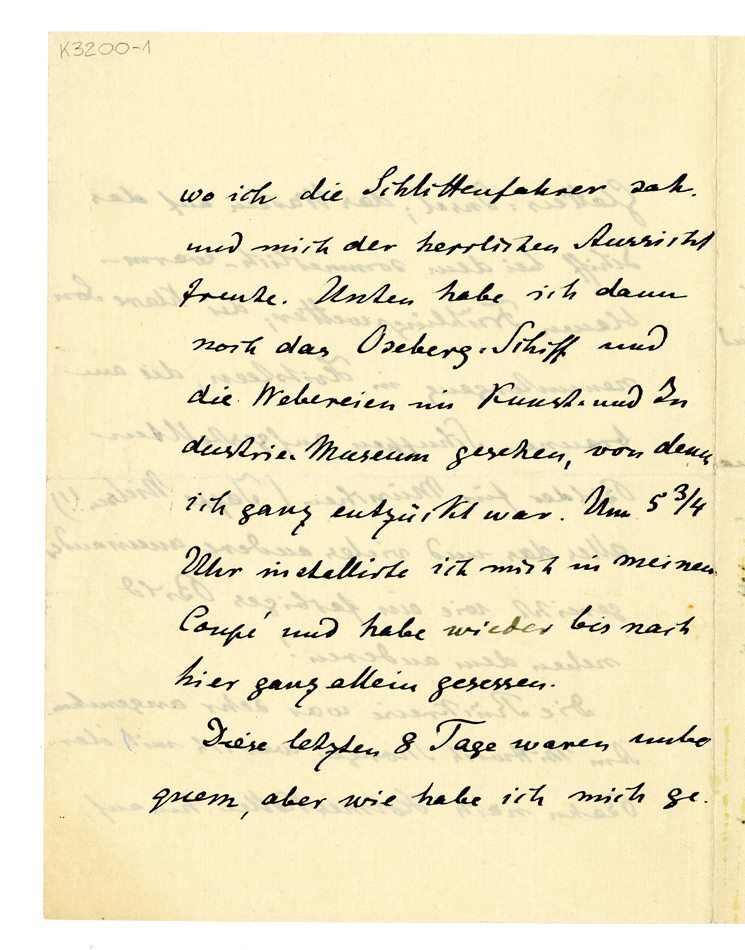 K3200-1
wo ich die Schlittenfahrer sah.
und mich der herrlichen Aussicht
freute. Unten habe ich dann
noch das Oseberg-Schiff und
die Webereien im Kunst- und In
dustrie-Museum gesehen, von denen
ich ganz entzückt war. Um 5 3/4
Uhr installirte ich mich in meinem
Coupé, und habe wieder bis nach
hier ganz allein gesessen.
Diese letzten 8 Tage waren unbe
quem, aber wie habe ich mich ge-